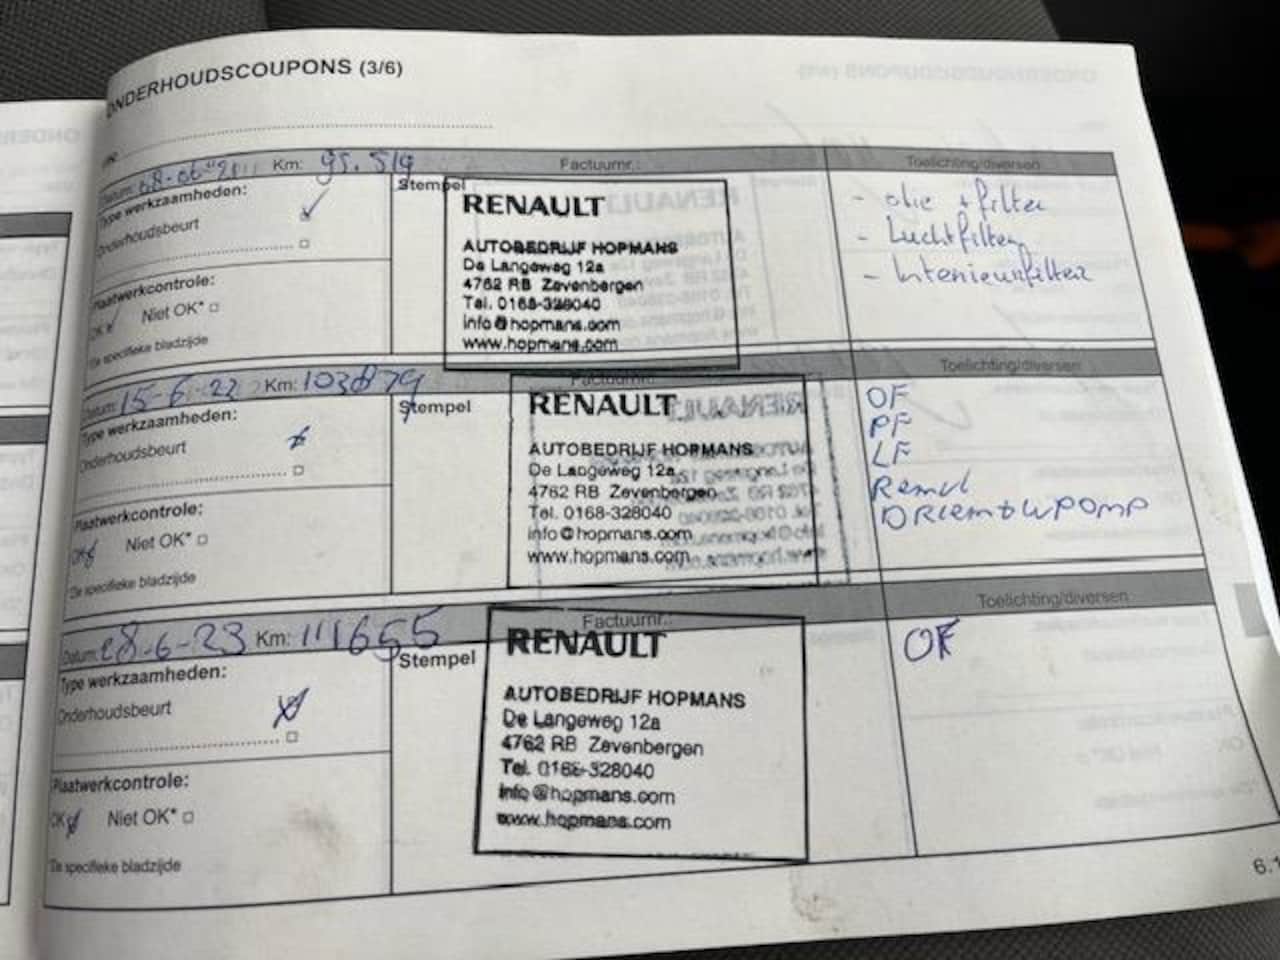 ONDERHOUDSCOUPONS (3/6)
Datum: 08-06-2011 Km: 95.519 Factuurnr.: Toelichting/diversen
Type werkzaamheden:
Onderhoudsbeurt
Stempel
RENAULT
AUTOBEDRIJF HOPMANS
De Langeweg 12a
4762 RB Zevenbergen
Tel. 0168-328040
info@hopmans.com
www.hopmans.com
- olie + filter
- Luchtfilter
- Interieurfilter
Plaatwerkcontrole:
OK Niet OK*
*Zie specifieke bladzijde
Datum: 15-6-22 Km: Factuurnr.: Toelichting/diversen
Type werkzaamheden:
Onderhoudsbeurt
Stempel
RENAULT
AUTOBEDRIJF HOPMANS
De Langeweg 12a
4762 RB Zevenbergen
Tel. 0168-328040
info@hopmans.com
www.hopmans.com
OF
PF
LF
Remvl
DRiem+WPOMP
Plaatwerkcontrole:
OK Niet OK*
*Zie specifieke bladzijde
Datum: 28-6-23 Km: 111655 Factuurnr.: Toelichting/diversen
Type werkzaamheden:
Onderhoudsbeurt
Stempel
RENAULT
AUTOBEDRIJF HOPMANS
De Langeweg 12a
4762 RB Zevenbergen
Tel. 0168-328040
info@hopmans.com
www.hopmans.com
OF
Plaatwerkcontrole:
OK Niet OK*
*Zie specifieke bladzijde